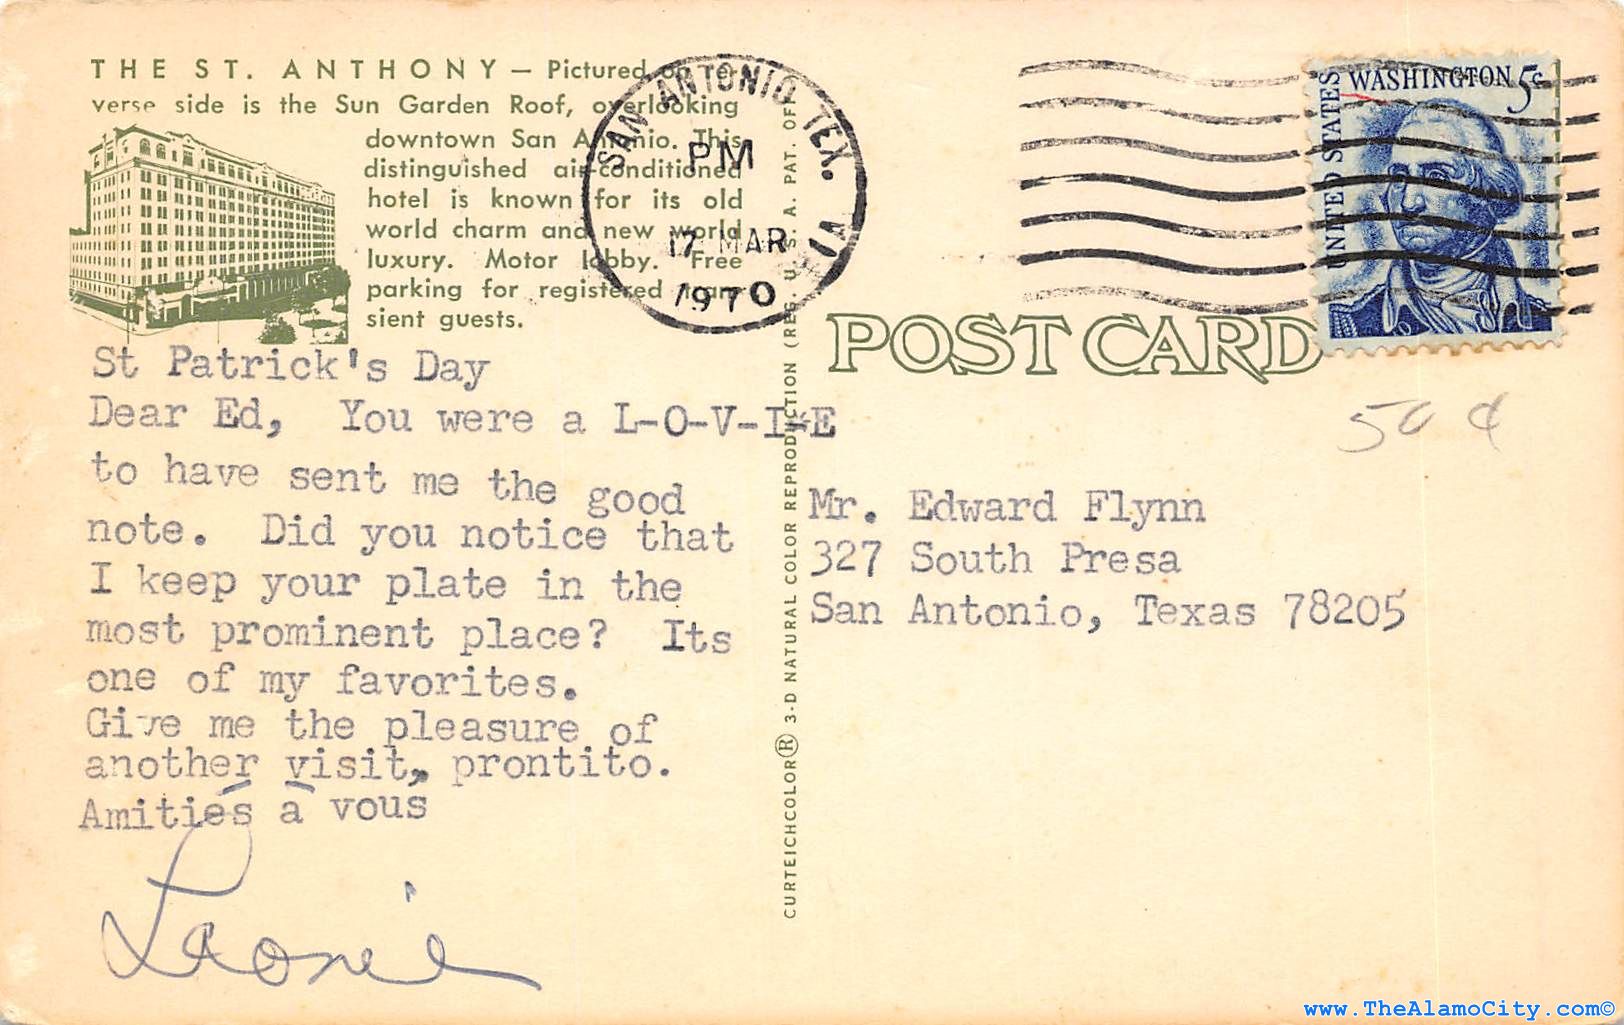 THE ST. ANTHONY — Pictured on re-
verse side is the Sun Garden Roof, overlooking
downtown San Antonio. This
distinguished air-conditioned
hotel is known for its old
world charm and new world
luxury. Motor lobby. Free
parking for registered tran-
sient guests.
SAN ANTONIO, TEX.
PM
17 MAR
1970
UNITED STATES
WASHINGTON 5¢
POST CARD
50¢
St Patrick's Day
Dear Ed, You were a L-O-V-I-E
to have sent me the good
note. Did you notice that
I keep your plate in the
most prominent place? Its
one of my favorites.
Give me the pleasure of
another visit, prontito.
Amitiés à vous
Leonie
CURTEICHCOLOR® 3-D NATURAL COLOR REPRODUCTION (REG. U. S. A. PAT. OFF.
Mr. Edward Flynn
327 South Presa
San Antonio, Texas 78205
www.TheAlamoCity.com©